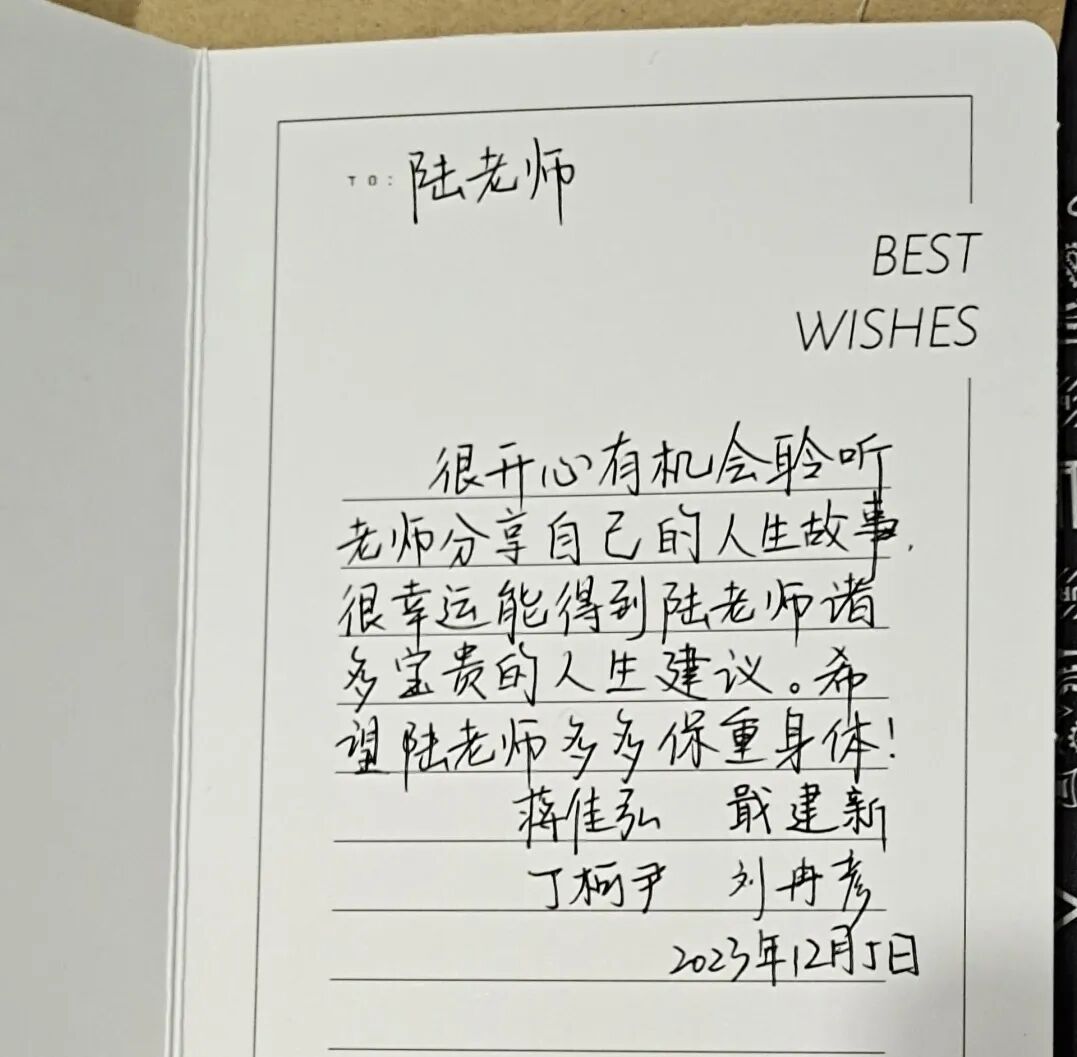 TO: 陆老师
BEST
WISHES
很开心有机会聆听
老师分享自己的人生故事,
很幸运能得到陆老师诸
多宝贵的人生建议。希
望陆老师多多保重身体!
蒋佳弘 戢建新
丁柯尹 刘冉彦
2023年12月5日